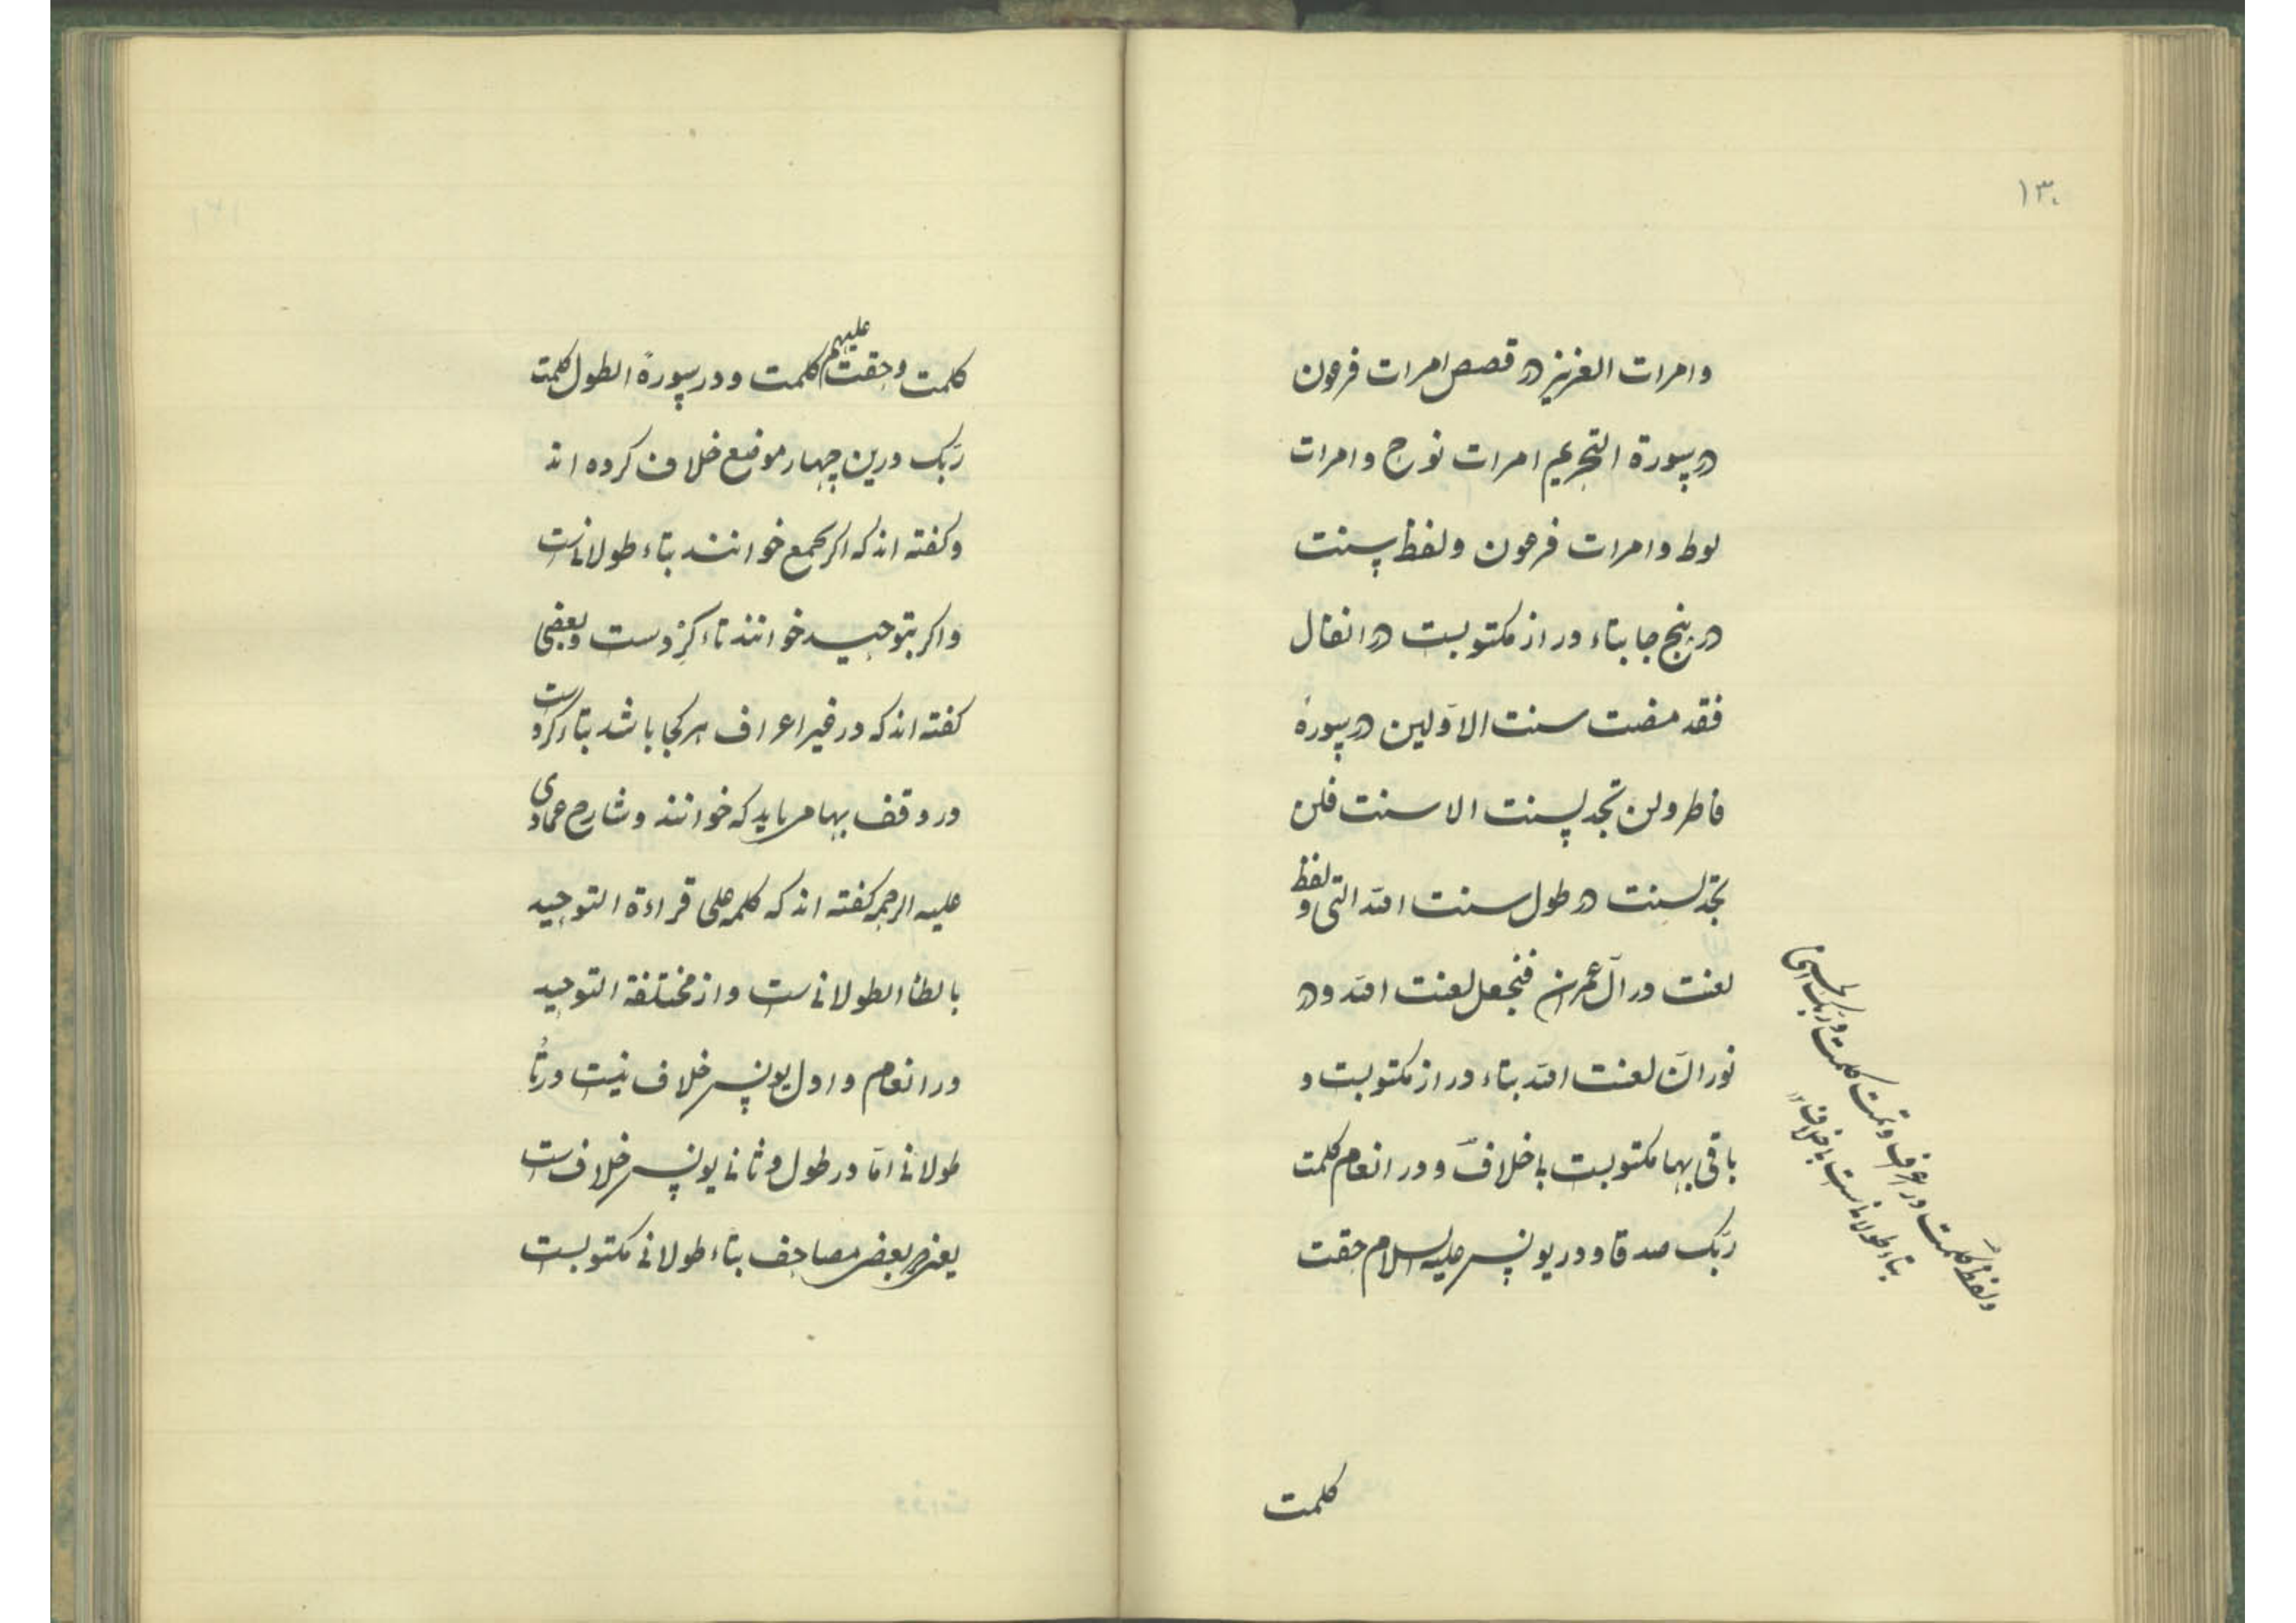 ۱۳۰
وامرات العزیز در قصص امرات فرعون
در سورة التحریم امرات نوح وامرات
لوط وامرات فرعون ولفظ سنت
در پنج جا بتاء دراز مکتوبست در انفال
فقد مضت سنت الاوّلین در سورهٔ
فاطر ولن تجد لسنت الا سنت فلن
تجد لسنت در طول سنت الله التی ولفظ
لعنت در آل عمران فنجعل لعنت الله ودر
نور انّ لعنت الله بتاء دراز مکتوبست و
باقی بها مکتوبست باخلاف ودر انعام کلمت
ربّک صدقا ودر یونس علیه السلام حقت
ولفظ کلمت در اعراف وتمت کلمت ربک الحسنی
بتاء طولانیست باخلاف ۱۲
کلمت
کلمت وحقت علیهم کلمت ودر سورهٔ الطول کلمت
ربّک درین چهار موضع خلاف کرده اند
وکفته اند که اکر بجمع خوانند بتاء طولانیست
واکر بتوحید خوانند تاء کردست وبعضی
کفته اند که در غیر اعراف هر کجا باشد بتاء کردست
در وقف بها می باید که خوانند وشارح عمادی
علیه الرحمه کفته اند که کلمه علی قراءة التوحید
بالطا الطولانیست واز مختلفة التوحید
در انعام واول یونس خلاف نیست در تا
طولانی امّا در طول وثانی یونس خلافست
یعنی در بعض مصاحف بتاء طولانی مکتوبست